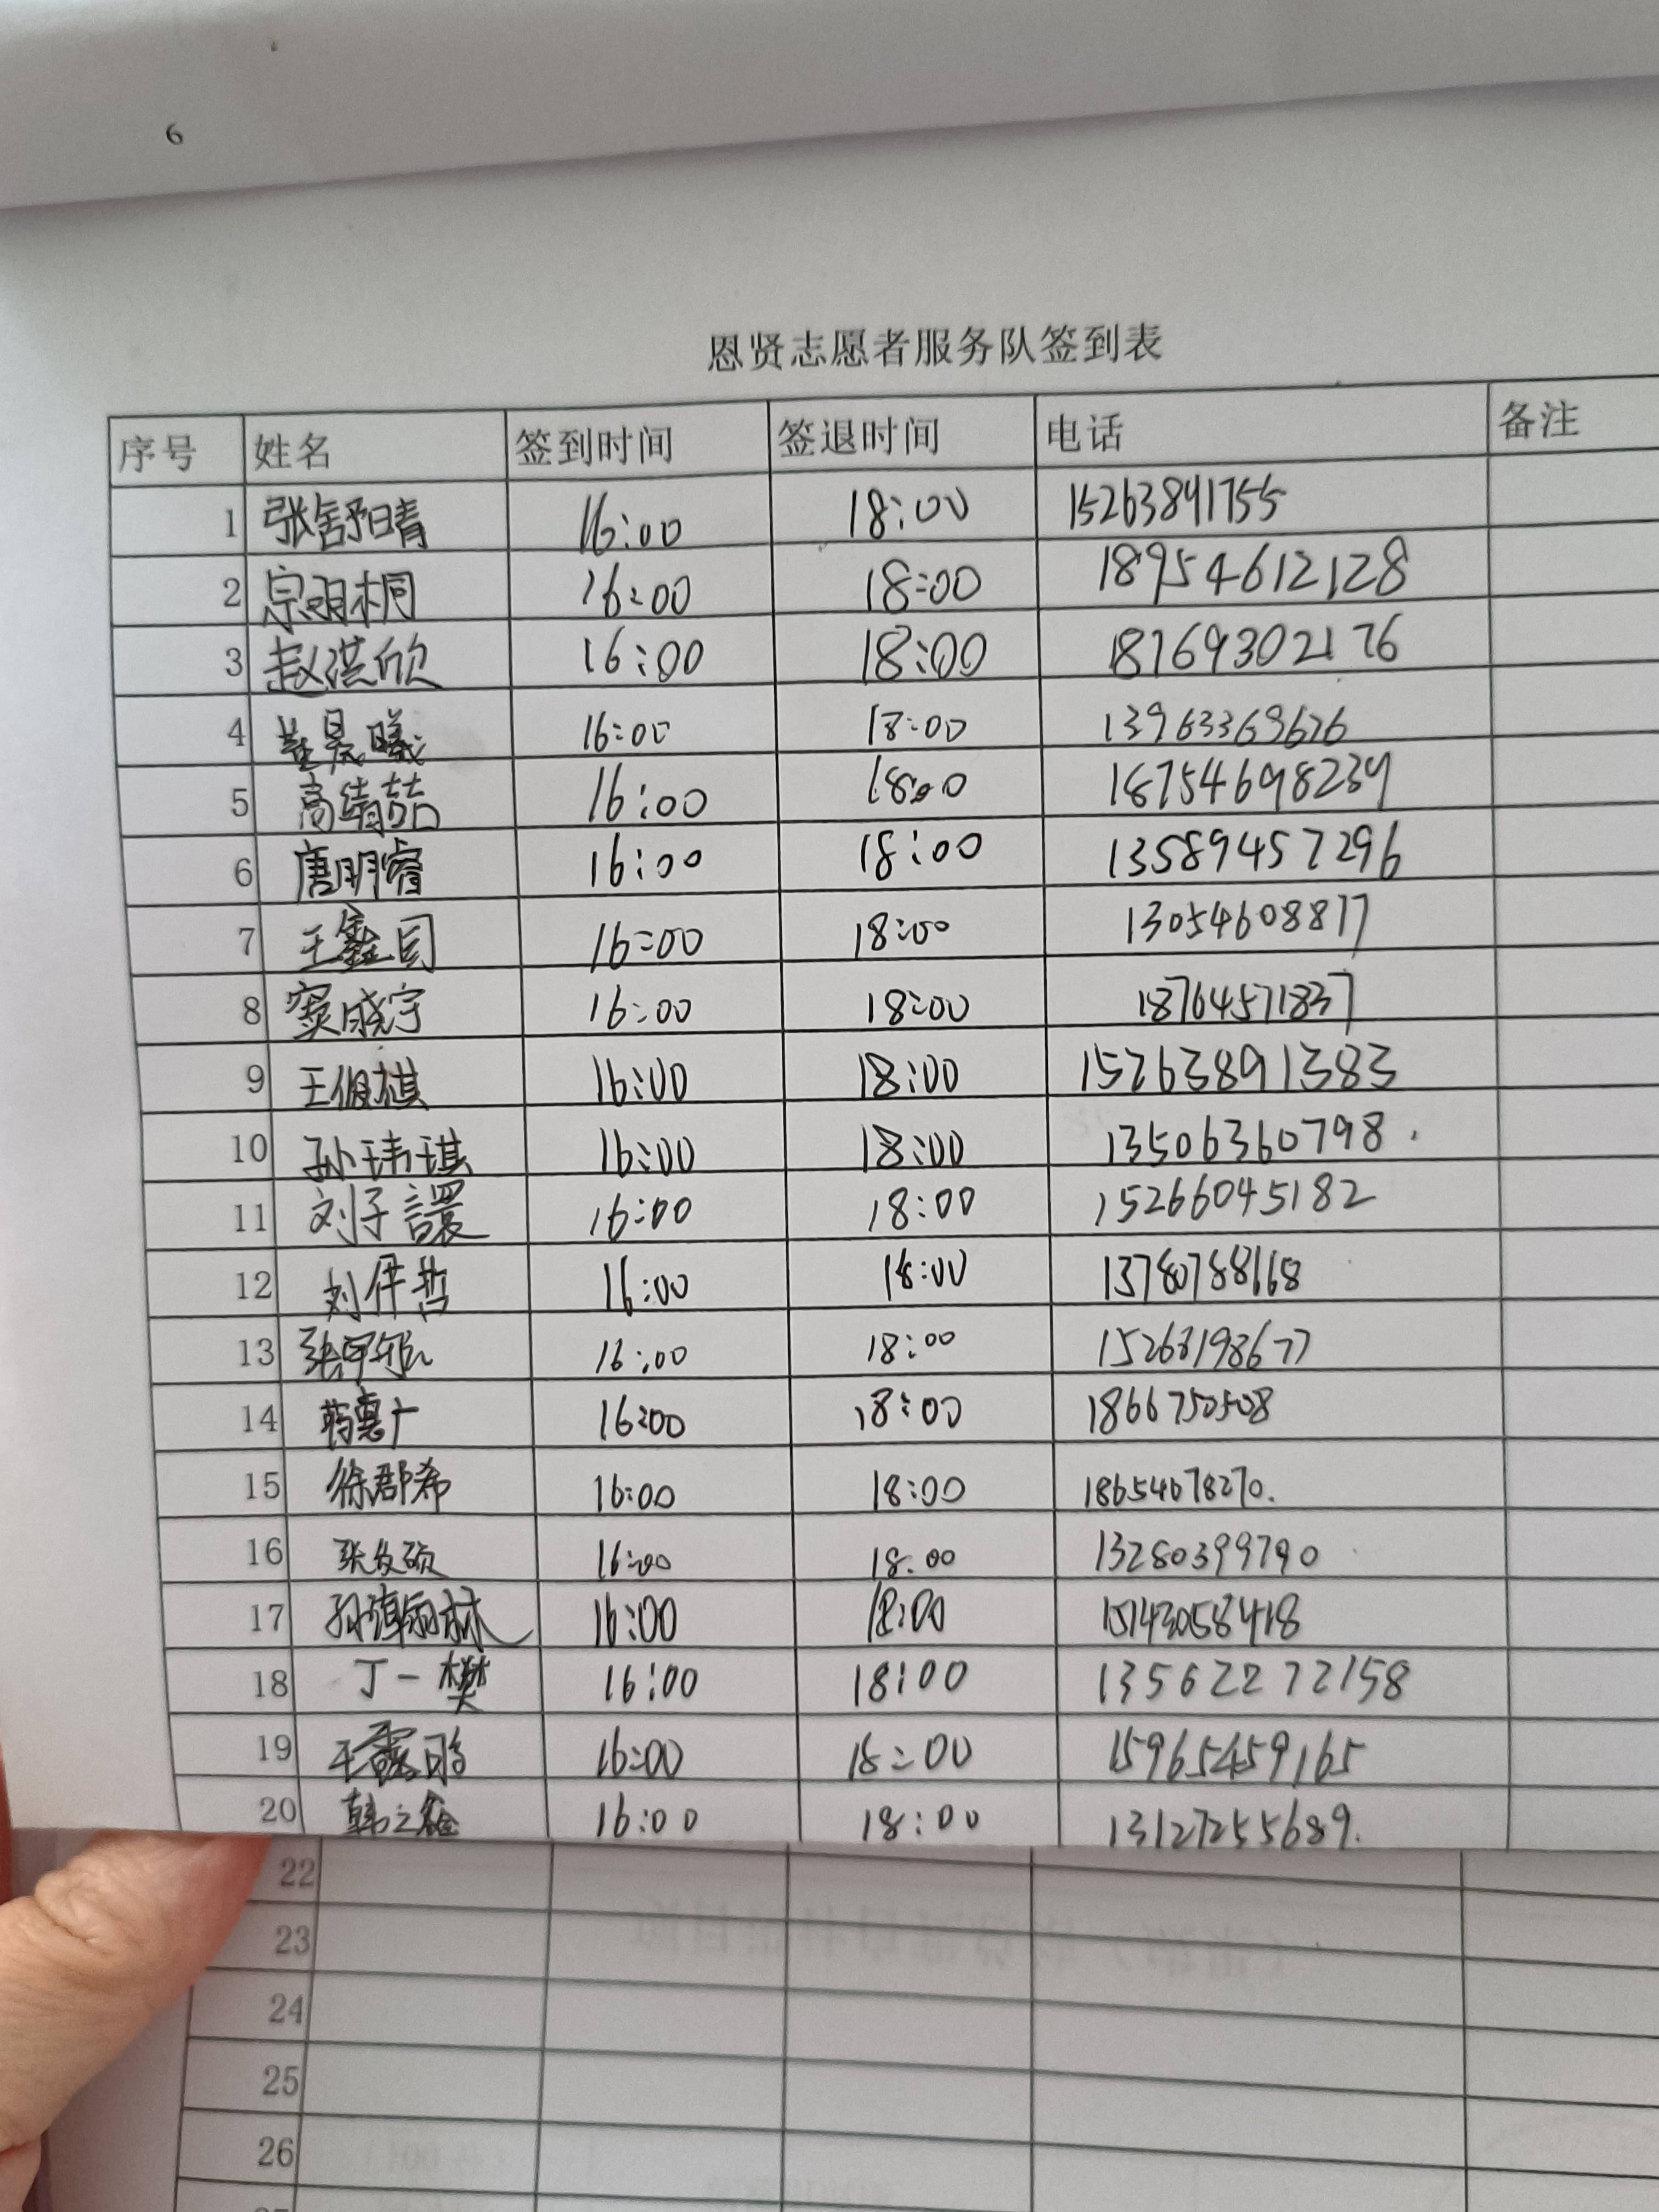 6
恩贤志愿者服务队签到表
序号 姓名 签到时间 签退时间 电话 备注
1 张舒阳晴 16:00 18:00 15263891755
2 宗明桐 16:00 18:00 18954612128
3 赵淇欣 16:00 18:00 18769302176
4 董昊曦 16:00 18:00 13963369626
5 高绮喆 16:00 18:00 18754698239
6 唐明睿 16:00 18:00 13589457296
7 王鑫 16:00 18:00 13054608817
8 窦晓宇 16:00 18:00 18764571837
9 王俊祺 16:00 18:00 15263891383
10 孙玮琪 16:00 18:00 13506360798.
11 刘子譞 16:00 18:00 15266045182
12 刘伴哲 16:00 18:00 13780788168
13 16:00 18:00 15263198677
14 16:00 18:00 1866750508
15 徐郡希 16:00 18:00 18654678270.
16 16:00 18:00 13280399790
17 16:00 18:00
18 丁一樊 16:00 18:00 13562272158
19 16:00 18:00 15965459165
20 韩之 16:00 18:00 13127255689.
22
23
24
25
26